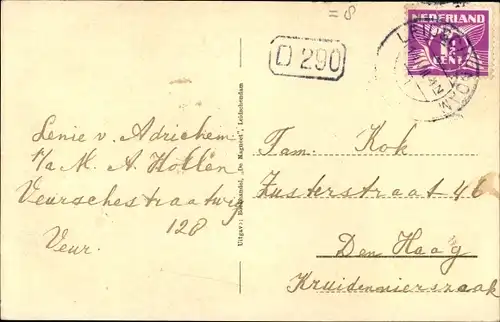 = 8
NEDERLAND
1½
CENT
D 290
Lenie v. Adrichem
p/a M. A. Hollen
Veurschestraatwg
128
Veur.
Uitgave: Boekhandel „De Magneet", Leidschendam
Fam. Kok
Zusterstraat 46
Den Haag
Kruidenierszaak